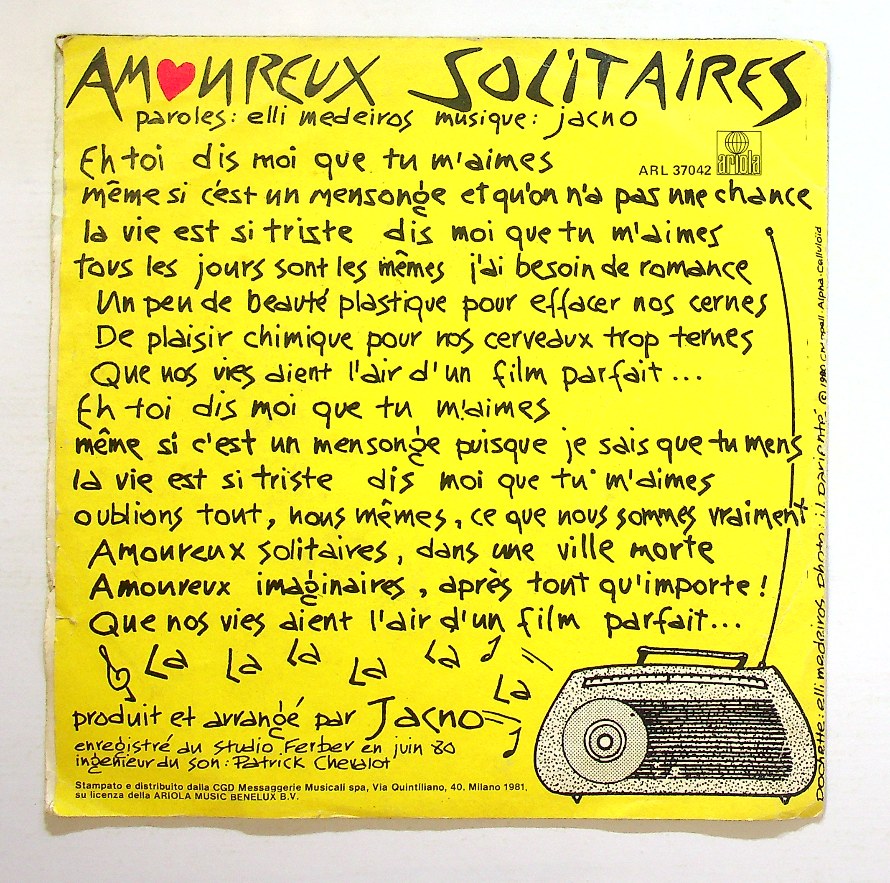 AMOUREUX SOLITAIRES
paroles: elli medeiros musique: jacno
ariola
ARL 37042
Eh toi dis moi que tu m'aimes
même si c'est un mensonge et qu'on n'a pas une chance
la vie est si triste dis moi que tu m'aimes
tous les jours sont les mêmes j'ai besoin de romance
Un peu de beauté plastique pour effacer nos cernes
De plaisir chimique pour nos cerveaux trop ternes
Que nos vies aient l'air d'un film parfait...
Eh toi dis moi que tu m'aimes
même si c'est un mensonge puisque je sais que tu mens
la vie est si triste dis moi que tu m'aimes
oublions tout, nous mêmes, ce que nous sommes vraiment
Amoureux solitaires, dans une ville morte
Amoureux imaginaires, après tout qu'importe!
Que nos vies aient l'air d'un film parfait...
La La La La La La
produit et arrangé par Jacno
enregistré au studio Ferber en juin 80
ingénieur du son: Patrick Chevalot
Stampato e distribuito dalla CGD Messaggerie Musicali spa, Via Quintiliano, 40, Milano 1981,
su licenza della ARIOLA MUSIC BENELUX B.V.
pochette: elli medeiros photo: il Parifnté © 1980 Alpha. Celluloïd